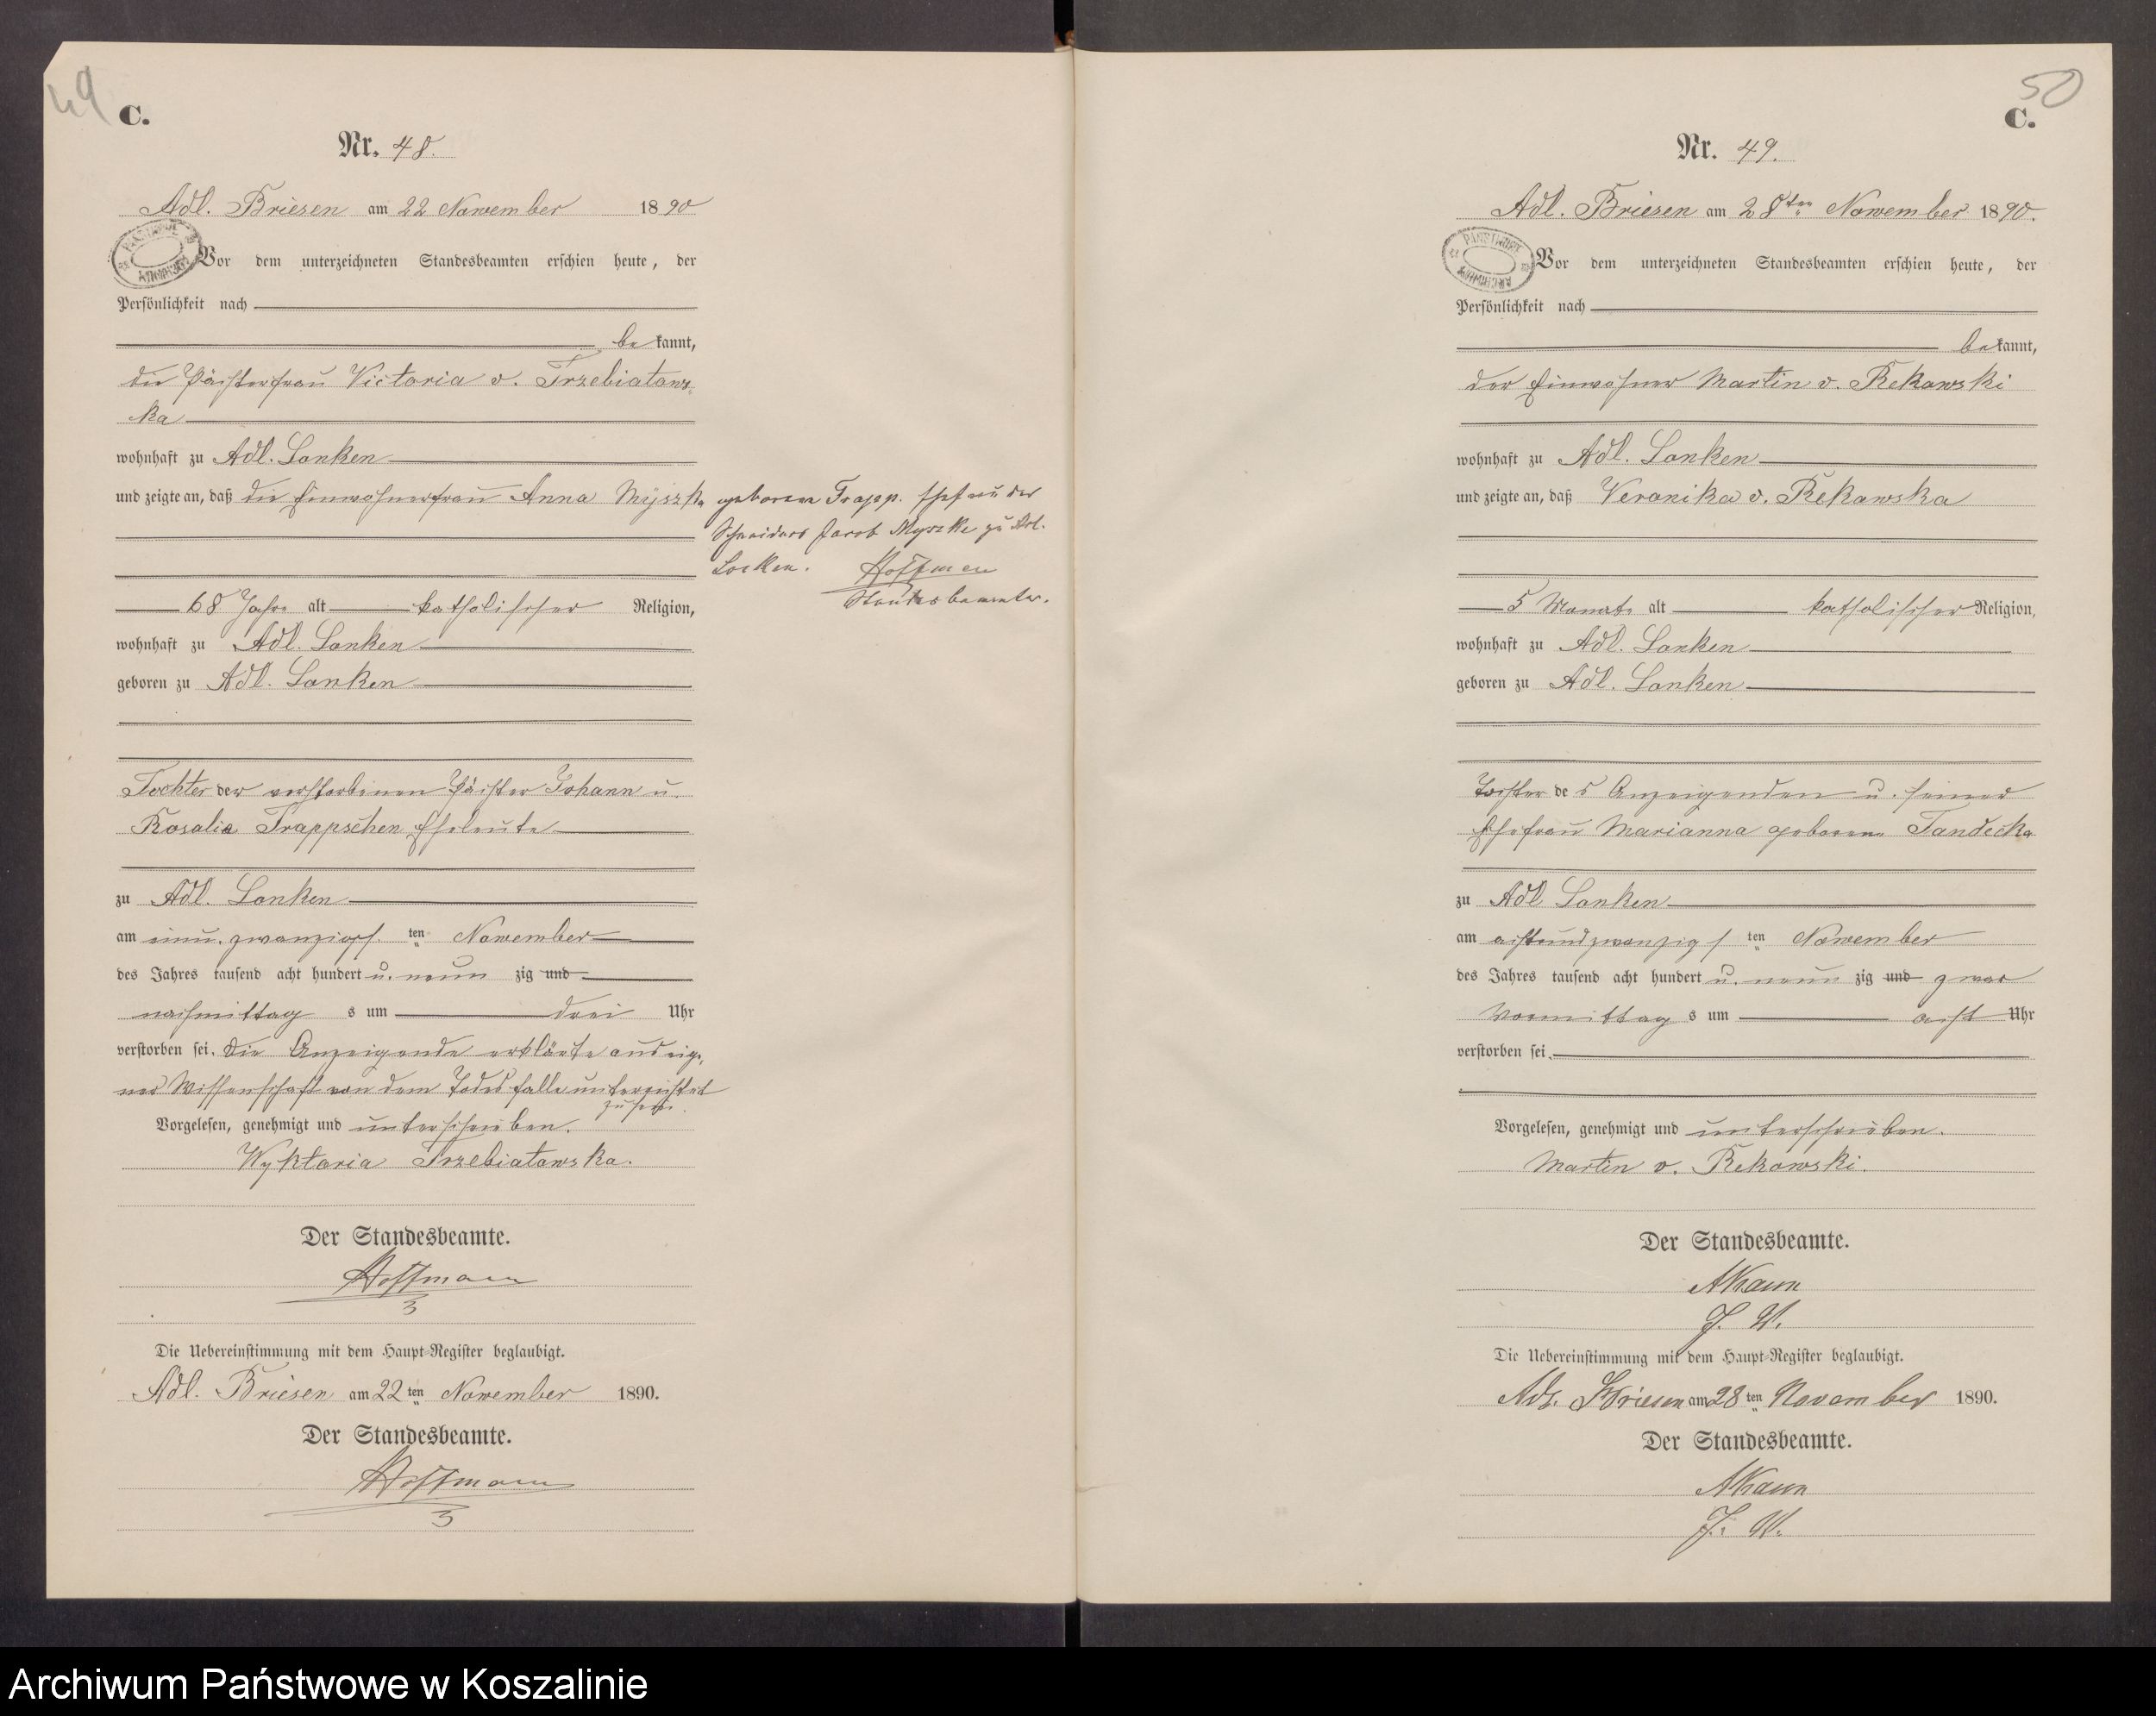 49
C.
Nr. 48.
Adl. Briesen am 22 November 1890
Vor dem unterzeichneten Standesbeamten erschien heute, der
Persönlichkeit nach
bekannt,
die Pächterfrau Victoria v. Trzebiatows-
ka
wohnhaft zu Adl. Lonken
und zeigte an, daß die Einwohnerfrau Anna Myszk, geborene Trapp. Ehefrau des
Schneiders Jacob Myszke zu Adl.
Lonken. Hoffmann
Standesbeamter.
68 Jahre alt katholischer Religion,
wohnhaft zu Adl. Lonken
geboren zu Adl. Lonken
Tochter der verstorbenen Pächter Johann u.
Rosalie Trappschen Eheleute
zu Adl. Lonken
am einu. zwanzigs. ten November
des Jahres tausend acht hundert u. neun zig und
nachmittag s um drei Uhr
verstorben sei. Die Anzeigende erklärte aus eige-
ner Wissenschaft von dem Todesfalle unterrichtet
zu sein.
Vorgelesen, genehmigt und unterschrieben.
Wyktoria Trzebiatowska.
Der Standesbeamte.
Hoffmann
Die Uebereinstimmung mit dem Haupt-Register beglaubigt.
Adl. Briesen am 22 ten November 1890.
Der Standesbeamte.
Hoffmann
50
C.
Nr. 49.
Adl. Briesen am 28ten November 1890.
Vor dem unterzeichneten Standesbeamten erschien heute, der
Persönlichkeit nach
bekannt,
der Einwohner Martin v. Rekowski
wohnhaft zu Adl. Lonken
und zeigte an, daß Veronika v. Rekowska
5 Monate alt katholischer Religion,
wohnhaft zu Adl. Lonken
geboren zu Adl. Lonken
Tochter des Anzeigenden u. seiner
Ehefrau Marianna geborene Tandecka
zu Adl Lonken
am achtundzwanzigs ten November
des Jahres tausend acht hundert u. neun zig und zwar
Vormittag s um acht Uhr
verstorben sei.
Vorgelesen, genehmigt und unterschrieben.
Martin v. Rekowski.
Der Standesbeamte.
J. V.
Die Uebereinstimmung mit dem Haupt-Register beglaubigt.
Adl. Briesen am 28 ten November 1890.
Der Standesbeamte.
J. V.
Archiwum Państwowe w Koszalinie